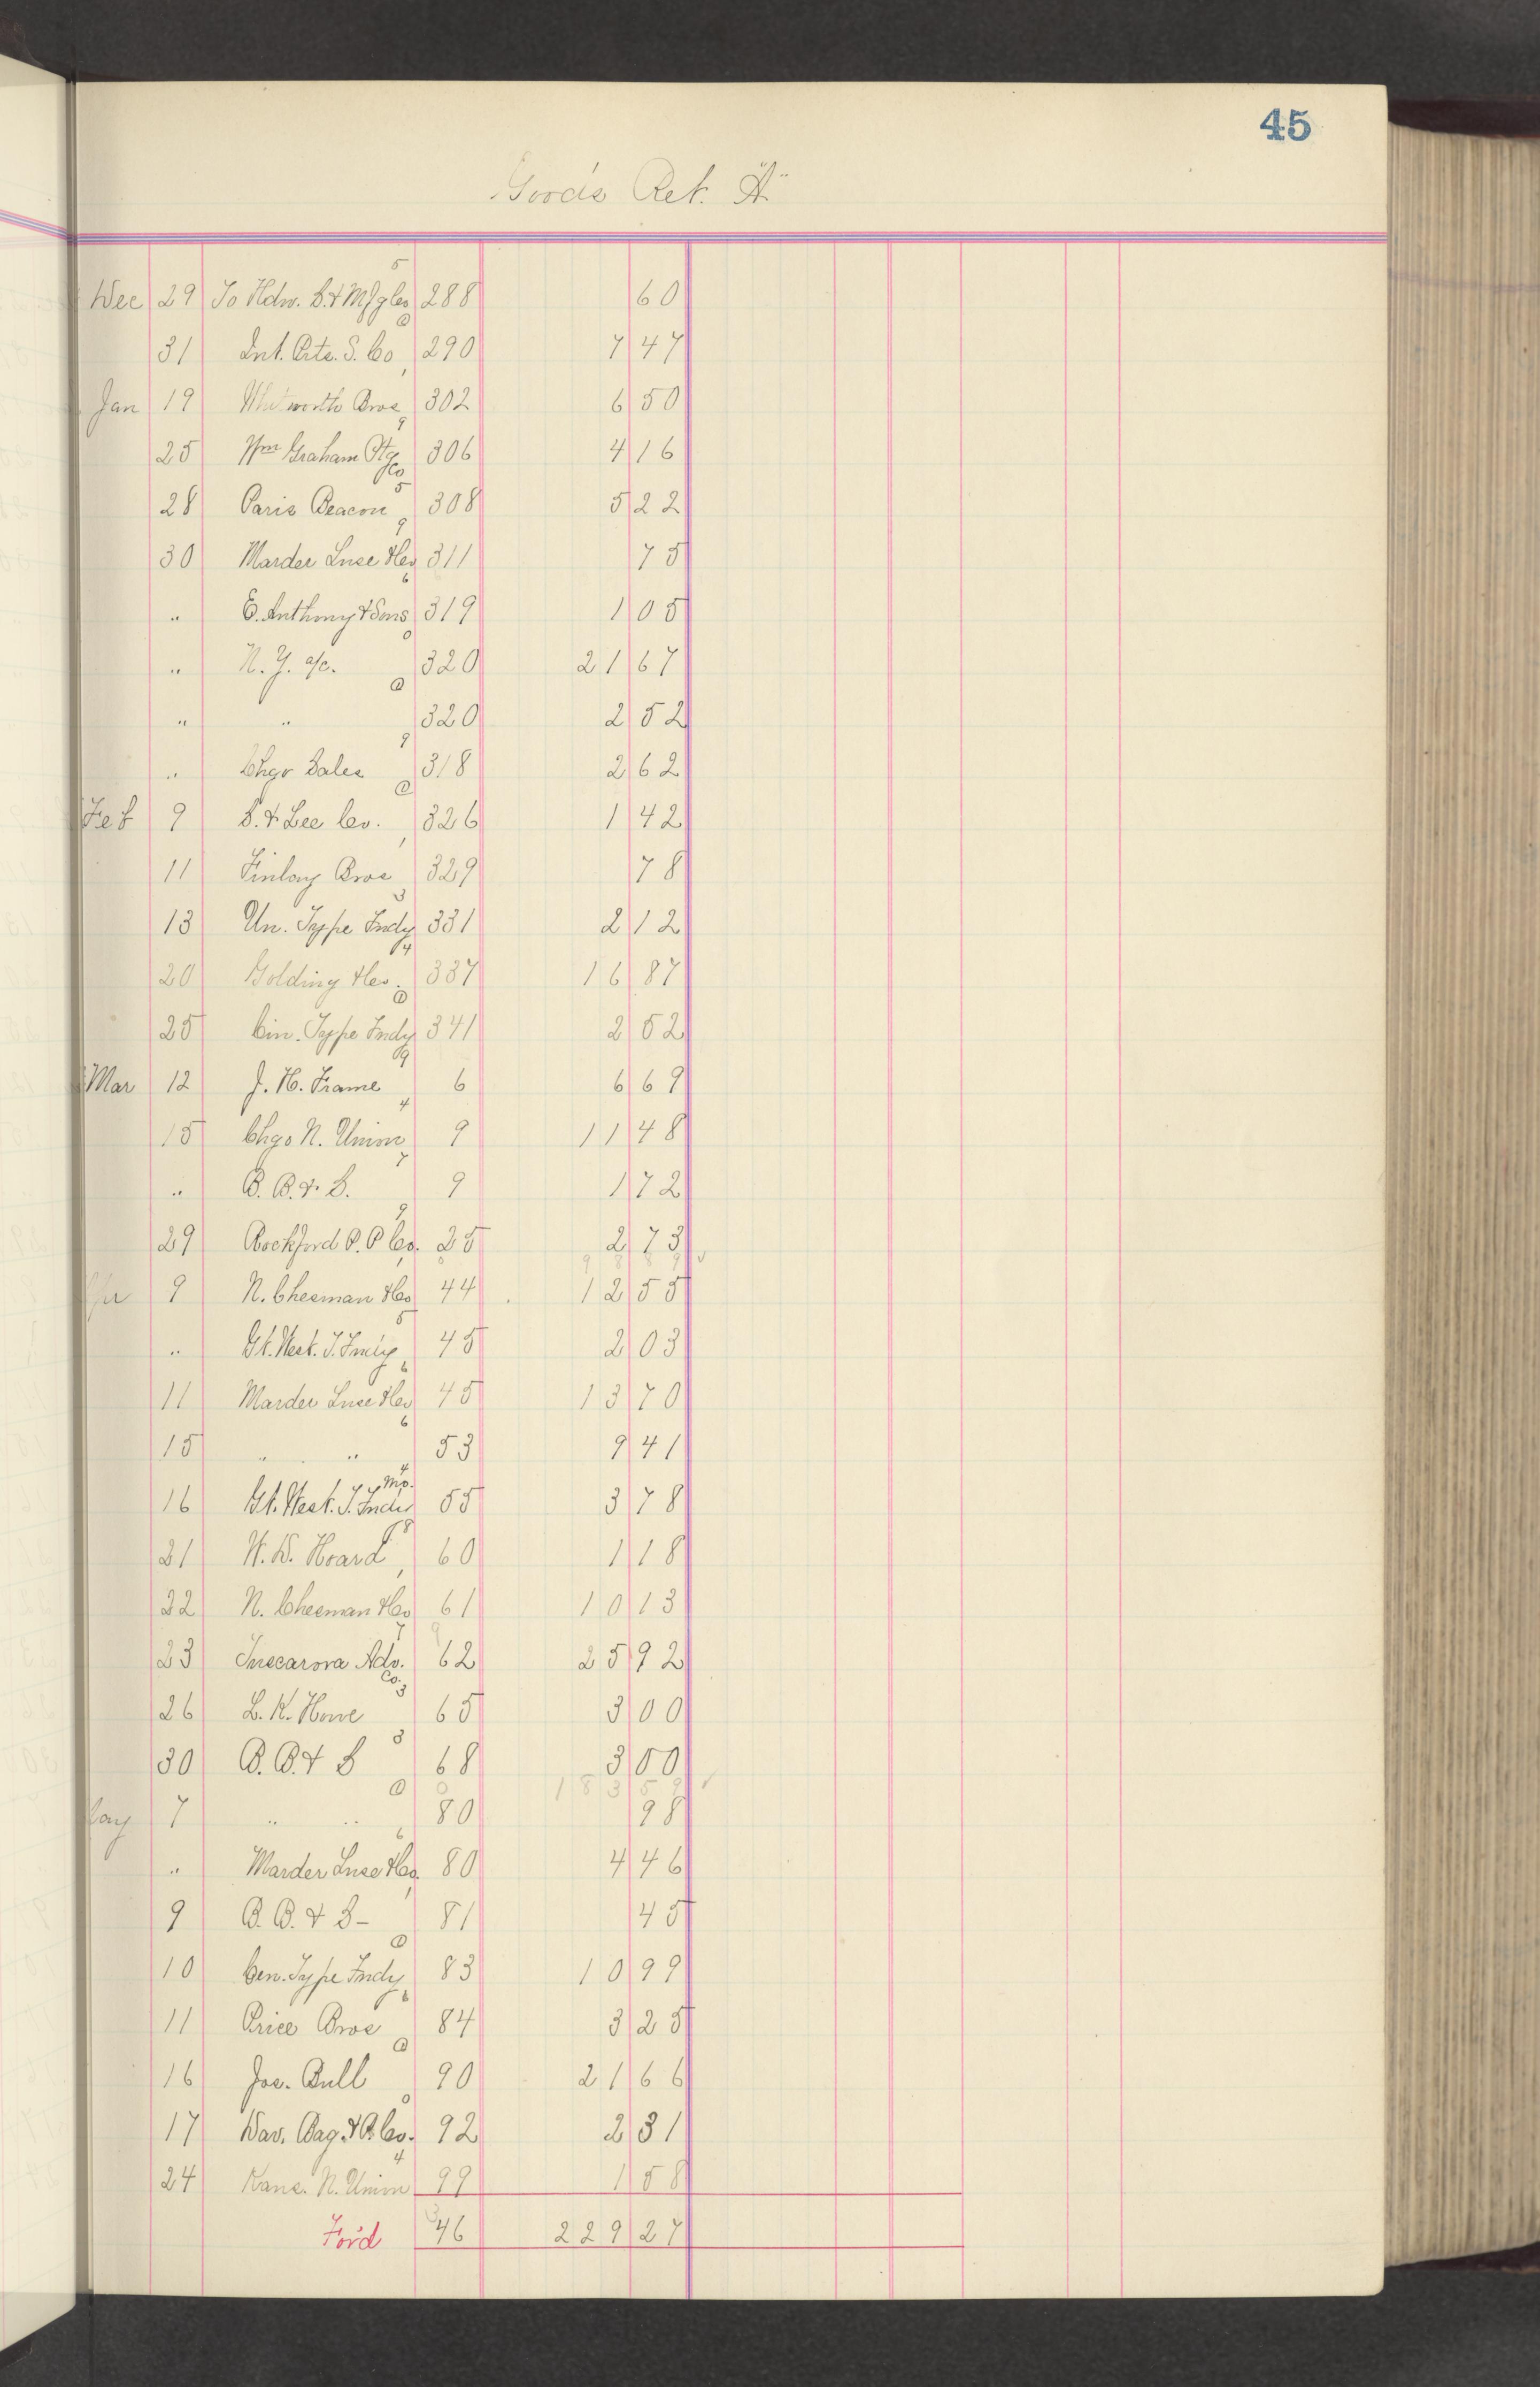 45
Goods Ret. "A"
Dec 29 To Hdw. S. & Mfg Co 288 60
31 Int. Ptg. S. Co 290 7 47
Jan 19 Whitworth Bros 302 6 50
25 Wm Graham Ptg Co 306 4 16
28 Paris Beacon 308 5 22
30 Marder Luse & Co 311 75
" E. Anthony & Sons 319 1 05
" N. Y. a/c. 320 21 67
" " 320 2 52
" Chgo Sales 318 2 62
Feb 9 S. & Lee Co. 326 1 42
11 Finlay Bros 329 78
13 Un. Type Fndy 331 2 12
20 Golding & Co. 337 16 87
25 Cin. Type Fndy 341 2 52
Mar 12 J. H. Frame 6 6 69
15 Chgo N. Union 9 11 48
" B. B. & S. 9 1 72
29 Rockford P. P Co. 25 2 73
9 N. Cheeman & Co 44 12 55
" Gt. West. T. Fndy 45 2 03
11 Marder Luse & Co 45 13 70
15 " " 53 9 41
16 Gt. West. T. Fndy Mo. 55 3 78
21 W. D. Hoard 60 1 18
22 N. Cheeman & Co 61 10 13
23 Tuscarora Adv. Co. 62 25 92
26 L. K. Howe 65 3 00
30 B. B. & S 68 3 00
183 59
May 7 " " 80 98
" Marder Luse & Co. 80 4 46
9 B. B. & S- 81 45
10 Cen. Type Fndy 83 10 99
11 Price Bros 84 3 25
16 Jos. Bull 90 21 66
17 Dav. Bag. & P. Co. 92 2 31
24 Kans. N. Union 99 1 58
For'd 46 229 27